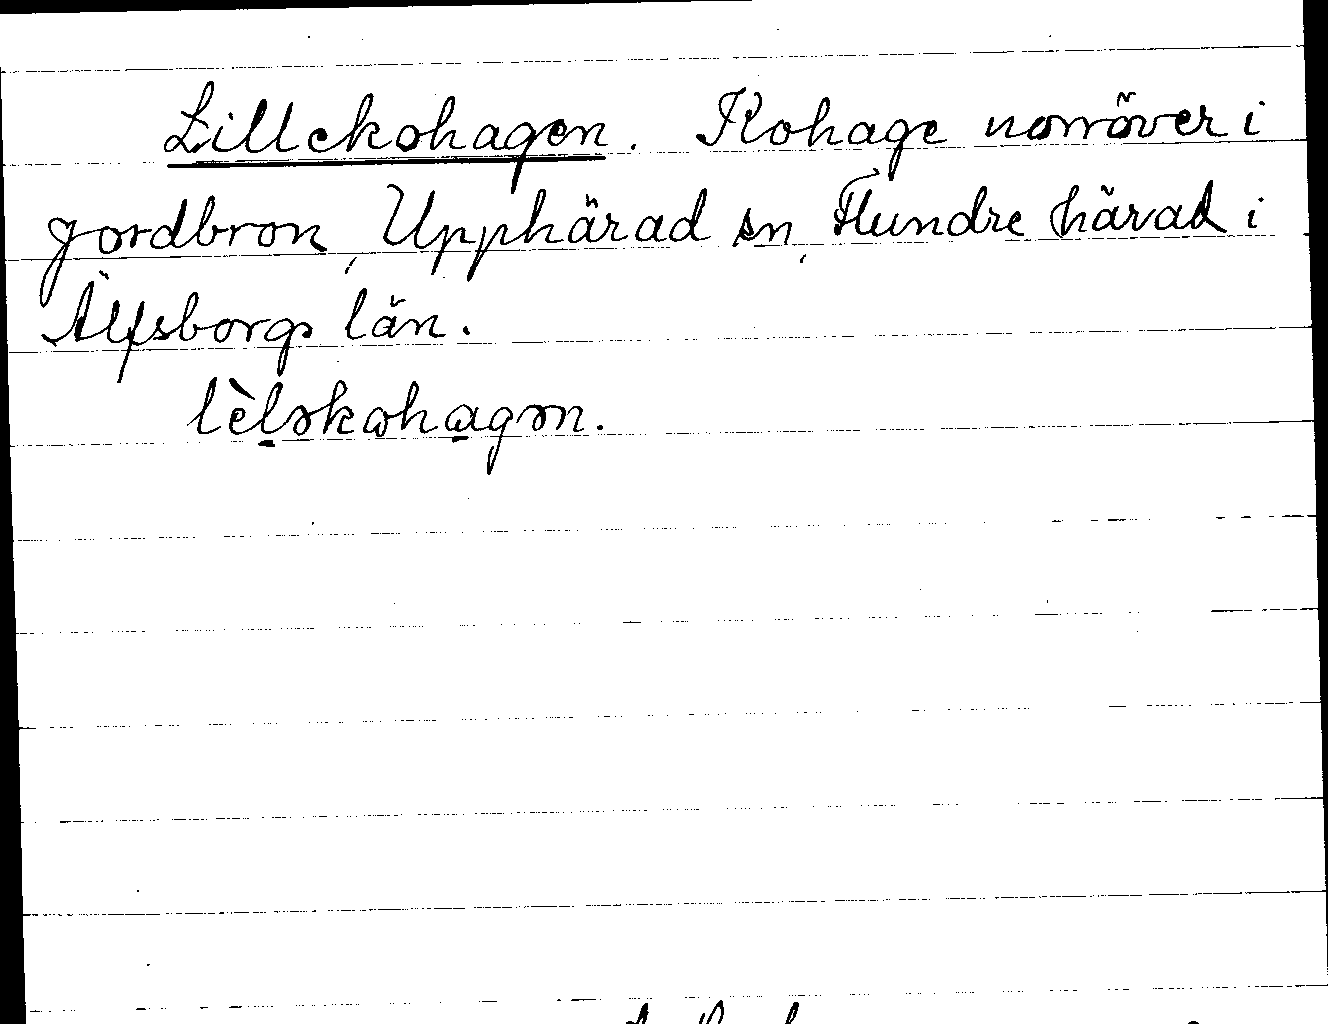 Lillekohagen. Kohage norröver i
Jordbron, Upphärad sn, Flundre härad i
Älfsborgs län.
lèl̠əkɷha̠gən.